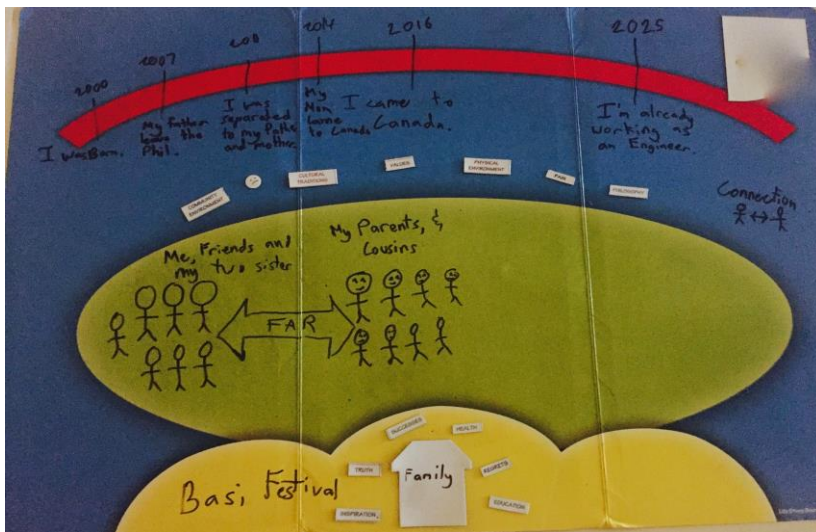 2000
2007
2011
2014
2016
2025
I was Born.
My Father
leave the
Phil.
I was
separated
to my Father
and mother.
My
Mom
came
to Canada.
I came to
Canada.
I'm already
working as
an Engineer.
COMMUNITY
ENVIRONMENT
CULTURAL
TRADITIONS
VALUES
PHYSICAL
ENVIRONMENT
PAIN
PHILOSOPHY
Connection
Me, Friends and
my two sister
My Parents, &
Cousins
FAR
SUCCESSES
HEALTH
TRUTH
Family
REGRETS
INSPIRATION
EDUCATION
Basi Festival